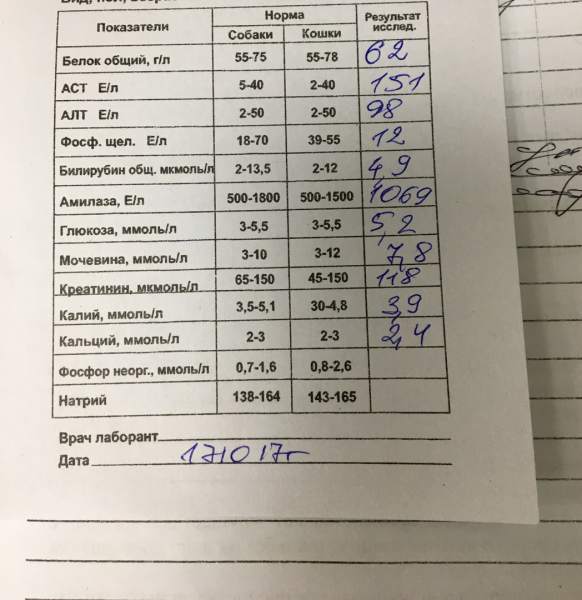 Показатели Норма Результат исслед.
Собаки Кошки
Белок общий, г/л 55-75 55-78 62
АСТ Е/л 5-40 2-40 151
АЛТ Е/л 2-50 2-50 98
Фосф. щел. Е/л 18-70 39-55 12
Билирубин общ. мкмоль/л 2-13,5 2-12 4,9
Амилаза, Е/л 500-1800 500-1500 1069
Глюкоза, ммоль/л 3-5,5 3-5,5 5,2
Мочевина, ммоль/л 3-10 3-12 7,8
Креатинин, мкмоль/л 65-150 45-150 118
Калий, ммоль/л 3,5-5,1 30-4,8 3,9
Кальций, ммоль/л 2-3 2-3 2,4
Фосфор неорг., ммоль/л 0,7-1,6 0,8-2,6
Натрий 138-164 143-165
Врач лаборант
Дата 171017г